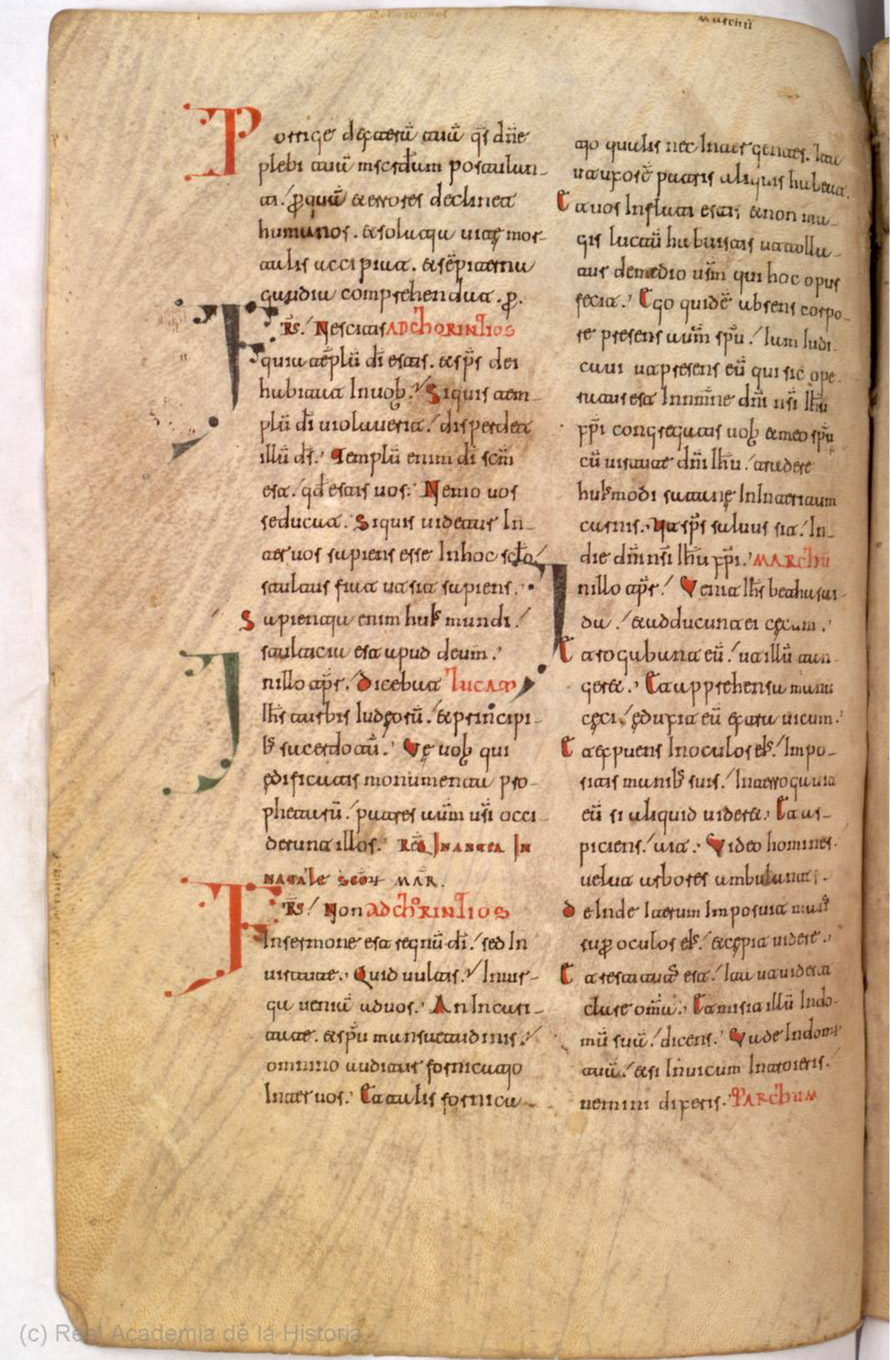 muschu
Porrige dexterā tuā qs dn̄e
plebi tuā mscrd̄iam postulan-
ti. p̄ quā & errores declinet
humanos. & solatia vite mor-
talis accipiat. & sēpiterna
gaudia comprehendat. p̄.
FRS. Nescitis AD CHORINTIOS
quia tēplū dī estis. & sp̄s dei
habitat Inuob; Siquis tem-
plū dī uiolauerit. disperdet
illū ds̄. Templū enim dī scm̄
est. qd̄ estis uos. Nemo uos
seducat. Siquis uidetur In-
ter uos sapiens esse Inhoc sclō
stultus fiat ut sit sapiens.
Sapientia enim hui; mundi.
stultitia est apud deum.
Inillo tp̄r. Dicebat LUCAM
Ihs̄ turbis Iudęorū. & principi-
b; sacerdotū. Vę uob; qui
ędificatis monumenta pro-
phetarū. patres aūm ur̄i occi-
derunt illos. INANTEA IN
NATALE SCŌR MAR.
FRS. Non AD CHORINTIOS
Insermone est regnū dī. sed In
uirtute. Quid uultis. Inuir-
ga ueniā aduos. An Incari-
tate. & spū mansuetudinis.
omnino auditur fornicatio
Inter uos. Et talis fornica-
tio qualis nec Inter gentes. Ita
ut uxorē patris aliquis habeat.
Et uos Inflati estis & non ma-
gis luctū habuistis ut tolla-
tur demedio ur̄m qui hoc opus
fecit. Ego quidē absens corpo-
re presens aūm spū. Iam Iudi-
caui ut presens eū qui sic ope-
ratus est Innmīne dnī nr̄i Ihū
xp̄i congregatis uob; & meo spū
cū uirtute dnī Ihū. tradere
hui;modi satanę Ininteritum
carnis. Ut sp̄s saluus sit. In-
die dnī nr̄i Ihū xp̄i. MARCHU
Inillo tp̄r. Venit Ihs̄ bethsai-
da. & adducunt ei cęcum.
Et rogabant eū. ut illū tan-
geret. Et apprehensa manu
cęci. ęduxit eū extra uicum.
Et expuens Inoculos ei;. Impo-
sitis manib; suis. Interrogauit
eū si aliquid uideret. Et as-
piciens. ait. Video homines.
uelut arbores ambulantes.
deInde Iterum Imposuit man;
sup̄ oculos ei;. & cępit uidere.
Et restitutus est. Ita ut uideret
clare omīa. Et misit illū Indo-
mū suā. dicens. Vade Indomū
tuā. & si Inuicum Introieris.
nemini dixeris. PARCHUM
(c) Real Academia de la Historia